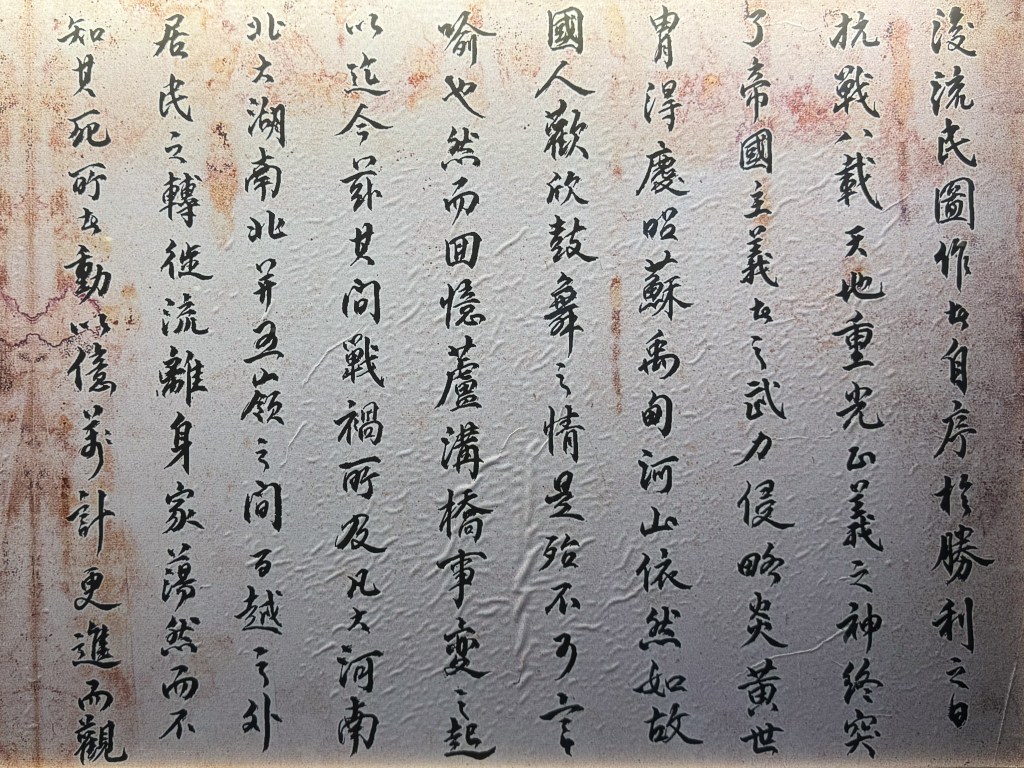 後流民圖作者自序於勝利之日
抗戰八載天地重光正義之神終突
了帝國主義者之武力侵略炎黃世
冑得慶昭蘇禹甸河山依然如故
國人歡欣鼓舞之情是殆不可言
喻也然而回憶蘆溝橋事變之起
以迄今茲其間戰禍所及凡大河南
北大湖南北并五嶺之間百越之外
居民之轉徙流離身家蕩然而不
知其死所者動以億萬計更進而觀